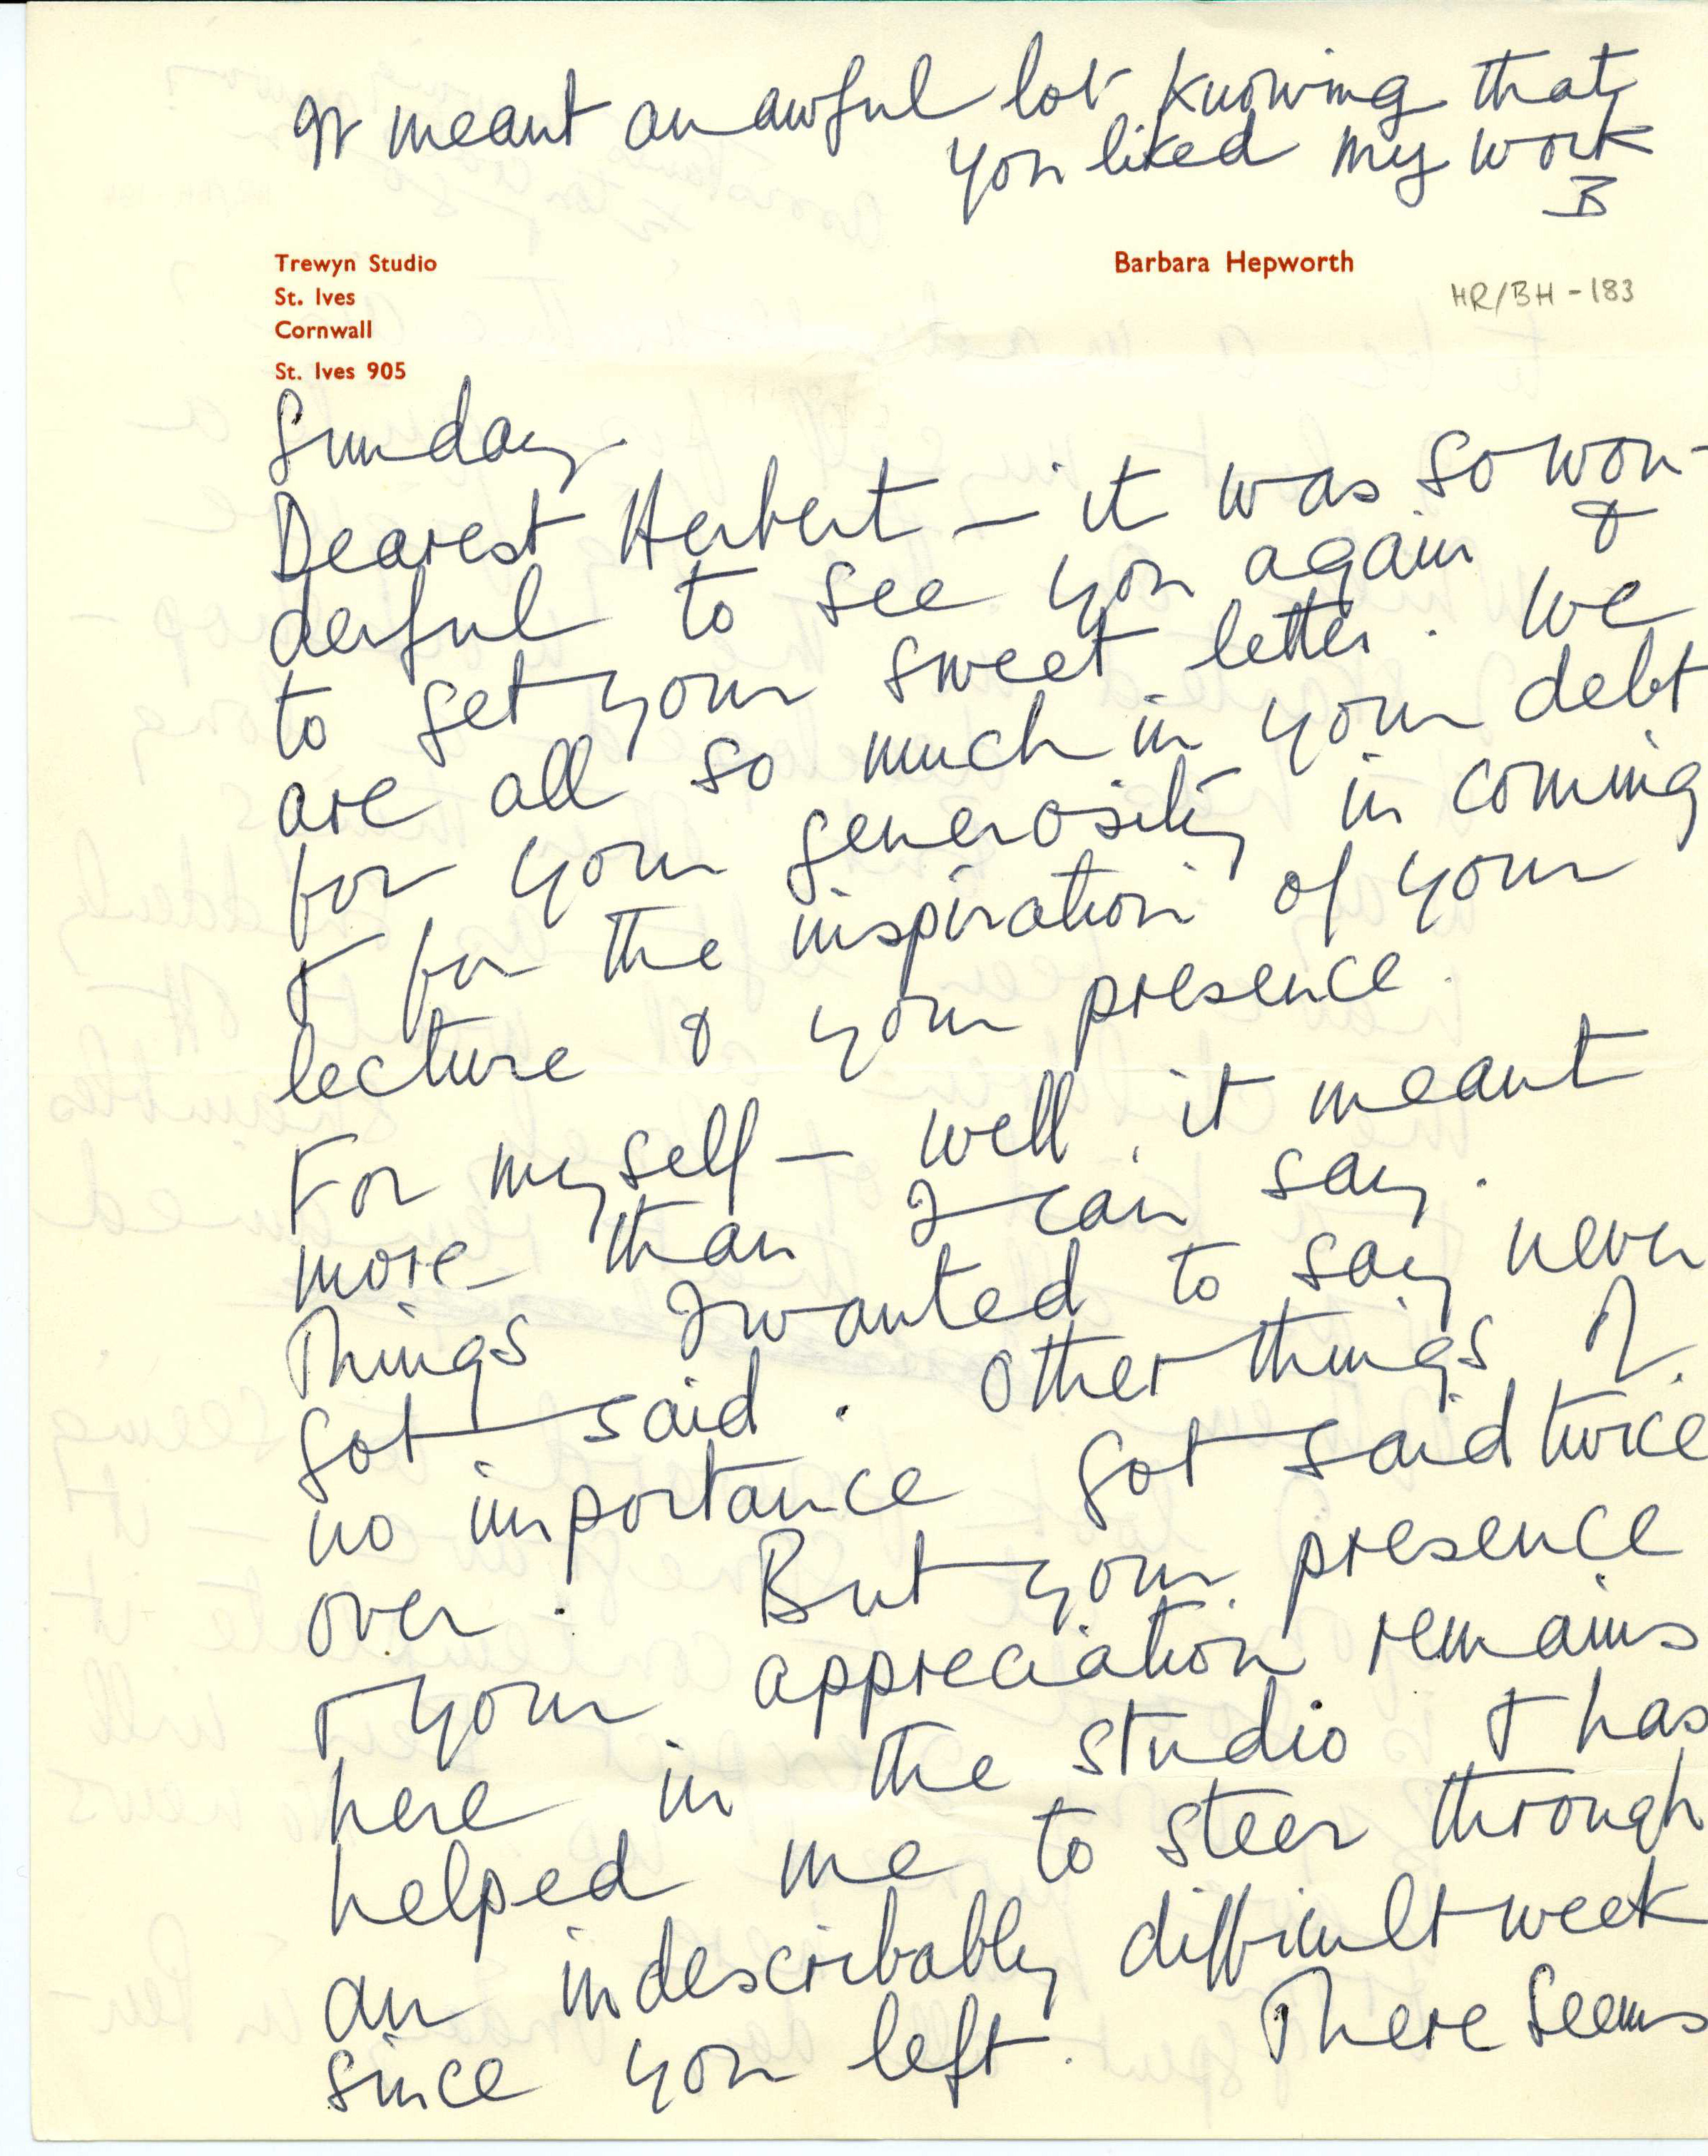 It meant an awful lot knowing that
you liked my work
B
Trewyn Studio
St. Ives
Cornwall
St. Ives 905
Barbara Hepworth
HR/BH - 183
Sunday.
Dearest Herbert — it was so won-
derful to see you again &
to get your sweet letter. We
are all so much in your debt
for your generosity in coming
& for the inspiration of your
lecture & your presence.
For myself — well, it meant
more than I can say.
Things I wanted to say never
got said. Other things of
no importance got said twice
over! But your presence
& your appreciation remains
here in the studio & has
helped me to steer through
an indescribably difficult week
since you left. There seems